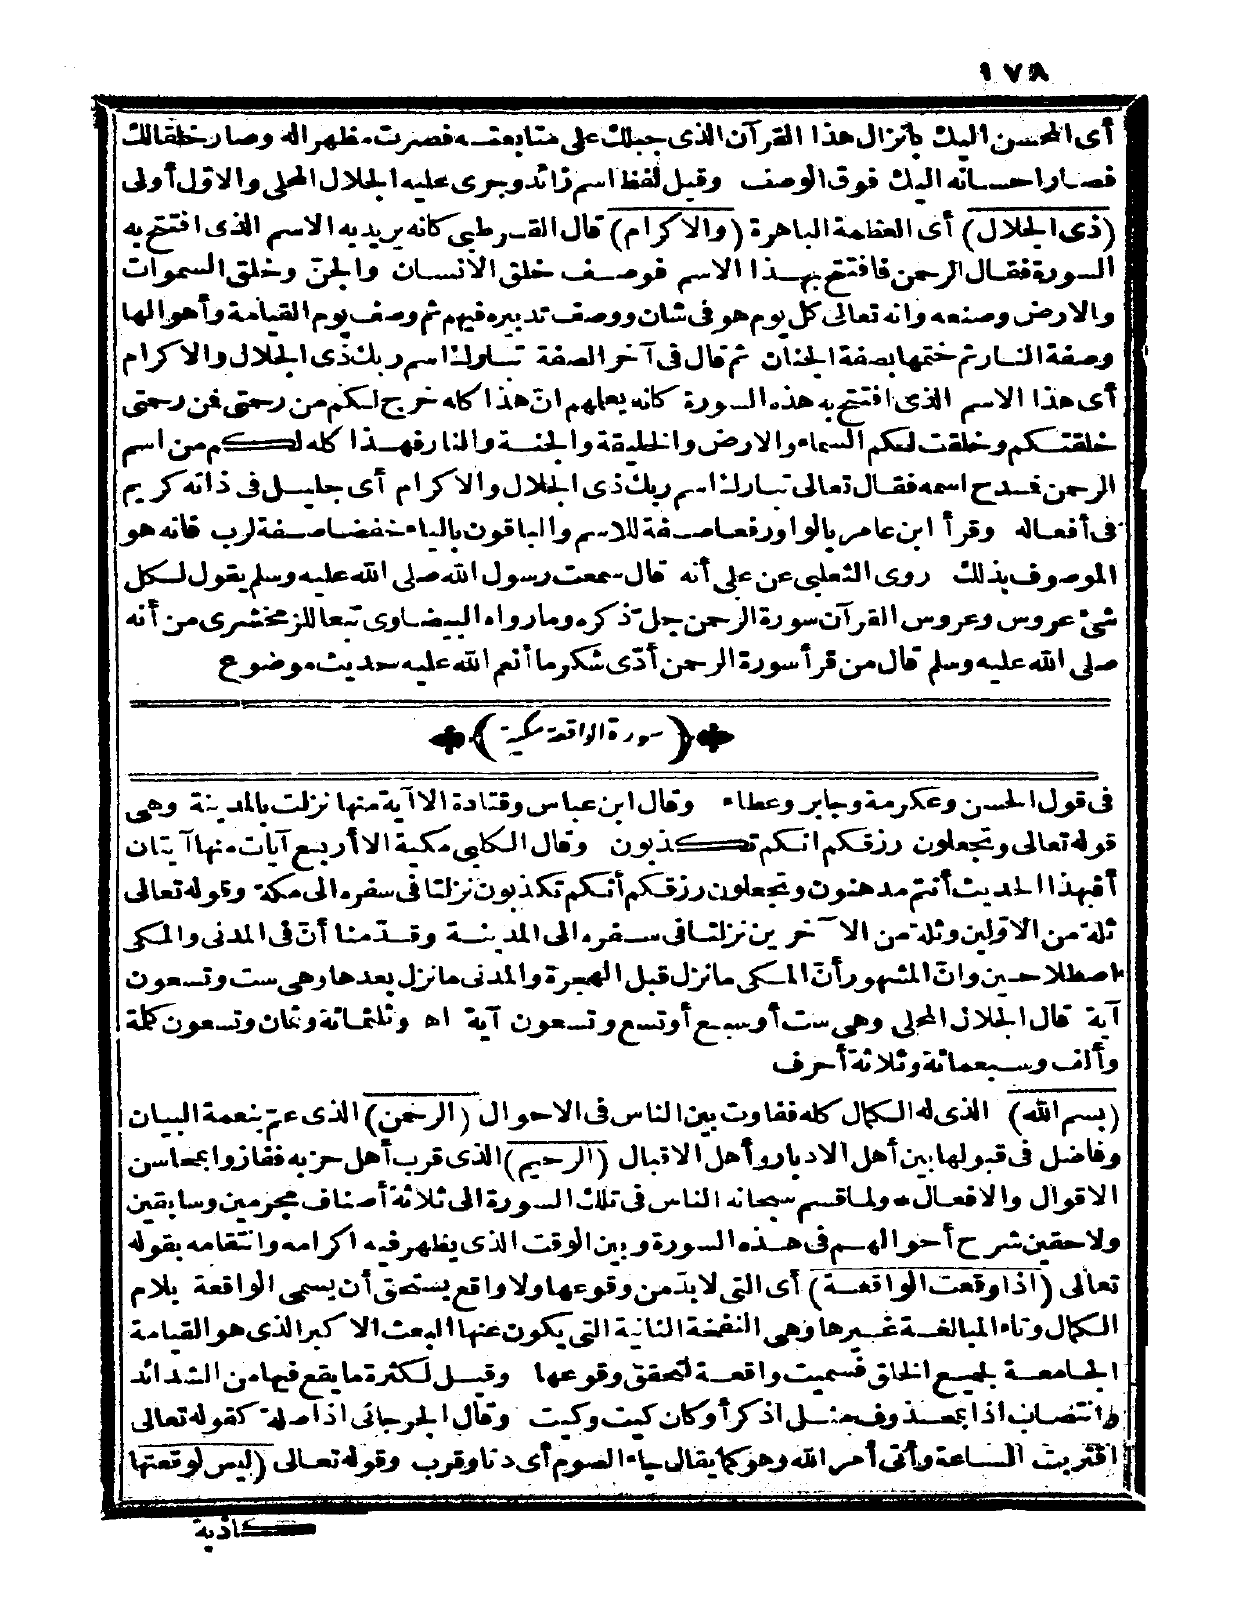 ١٧٨
أى المحسن اليك بانزال هذا القرآن الذى جبلك على متابعته فصرت مظهرا له وصار خلقالك
فصار احسانه اليك فوق الوصف وقيل لفظ اسم زائد وجرى عليه الجلال المحلى والاول أولى
(ذى الجلال) أى العظمة الباهرة (والاكرام) قال القرطبى كانه يريد به الاسم الذى افتتح به
السورة فقال الرحمن فافتتح بهذا الاسم فوصف خلق الانسان والجنّ وخلق السموات
والارض وصنعه وانه تعالى كل يوم هو فى شان ووصف تدبيره فيهم ثم وصف يوم القيامة وأهوالها
وصفة النار ثم ختمها بصفة الجنان ثم قال فى آخر الصفة تبارك اسم ربك ذى الجلال والاكرام
أى هذا الاسم الذى افتتح به هذه السورة كانه يعلمهم انّ هذا كله خرج لكم من رحمتى فمن رحمتى
خلقتكم وخلقت لكم السماء والارض والخليقة والجنة والنار فهذا كله لكم من اسم
الرحمن فمدح اسمه فقال تعالى تبارك اسم ربك ذى الجلال والاكرام أى جليل فى ذاته كريم
فى أفعاله وقرأ ابن عامر بالواو رفعا صفة للاسم والباقون بالياء خفضا صفة لرب فانه هو
الموصوف بذلك روى الثعلبى عن على أنه قال سمعت رسول الله صلى الله عليه وسلم يقول لكل
شئ عروس وعروس القرآن سورة الرحمن جلّ ذكره وما رواه البيضاوى تبعا للزمخشرى من أنه
صلى الله عليه وسلم قال من قرأ سورة الرحمن أدّى شكر ما أنعم الله عليه حديث موضوع
(سورة الواقعة مكية)
فى قول الحسن وعكرمة وجابر وعطاء وقال ابن عباس وقتادة الا آية منها نزلت بالمدينة وهى
قوله تعالى وتجعلون رزقكم انكم تكذبون وقال الكلبى مكية الا أربع آيات منها آيتان
أفبهذا الحديث أنتم مدهنون وتجعلون رزقكم أنكم تكذبون نزلتا فى سفره الى مكة وقوله تعالى
ثلة من الاوّلين وثلة من الآخرين نزلتا فى سفره الى المدينة وقدّمنا أنّ فى المدنى والمكى
اصطلاحين وانّ المشهور أنّ المكى ما نزل قبل الهجرة والمدنى ما نزل بعدها وهى ست وتسعون
آية قال الجلال المحلى وهى ست أوسبع أوتسع وتسعون آية اه وثلثمائة وثمان وتسعون كلة
وألف وسبعمائة وثلاثة أحرف
(بسم الله) الذى له الكمال كله ففاوت بين الناس فى الاحوال (الرحمن) الذى عمّ بنعمة البيان
وفاضل فى قبولها بين أهل الادبار وأهل الاقبال (الرحيم) الذى قرب أهل حزبه ففازوا بمحاسن
الاقوال والافعال * ولما قسم سبحانه الناس فى تلك السورة الى ثلاثة أصناف مجرمين وسابقين
ولاحقين شرح أحوالهم فى هذه السورة وبين الوقت الذى يظهر فيه اكرامه وانتقامه بقوله
تعالى (اذا وقعت الواقعة) أى التى لابدّ من وقوعها ولا واقع يستحق أن يسمى الواقعة بلام
الكمال وتاء المبالغة غيرها وهى النفخة الثانية التى يكون عنها البعث الاكبر الذى هو القيامة
الجامعة لجميع الخلق فسميت واقعة لتحقق وقوعها وقيل لكثرة ما يقع فيها من الشدائد
وانتصاب اذا بمحذوف مثل اذكر أو كان كيت وكيت وقال الجرجانى اذا صلة كقوله تعالى
اقتربت الساعة وأتى أمر الله وهو كما يقال جاء الصوم أى دنا وقرب وقوله تعالى (ليس لوقعتها
كاذبة